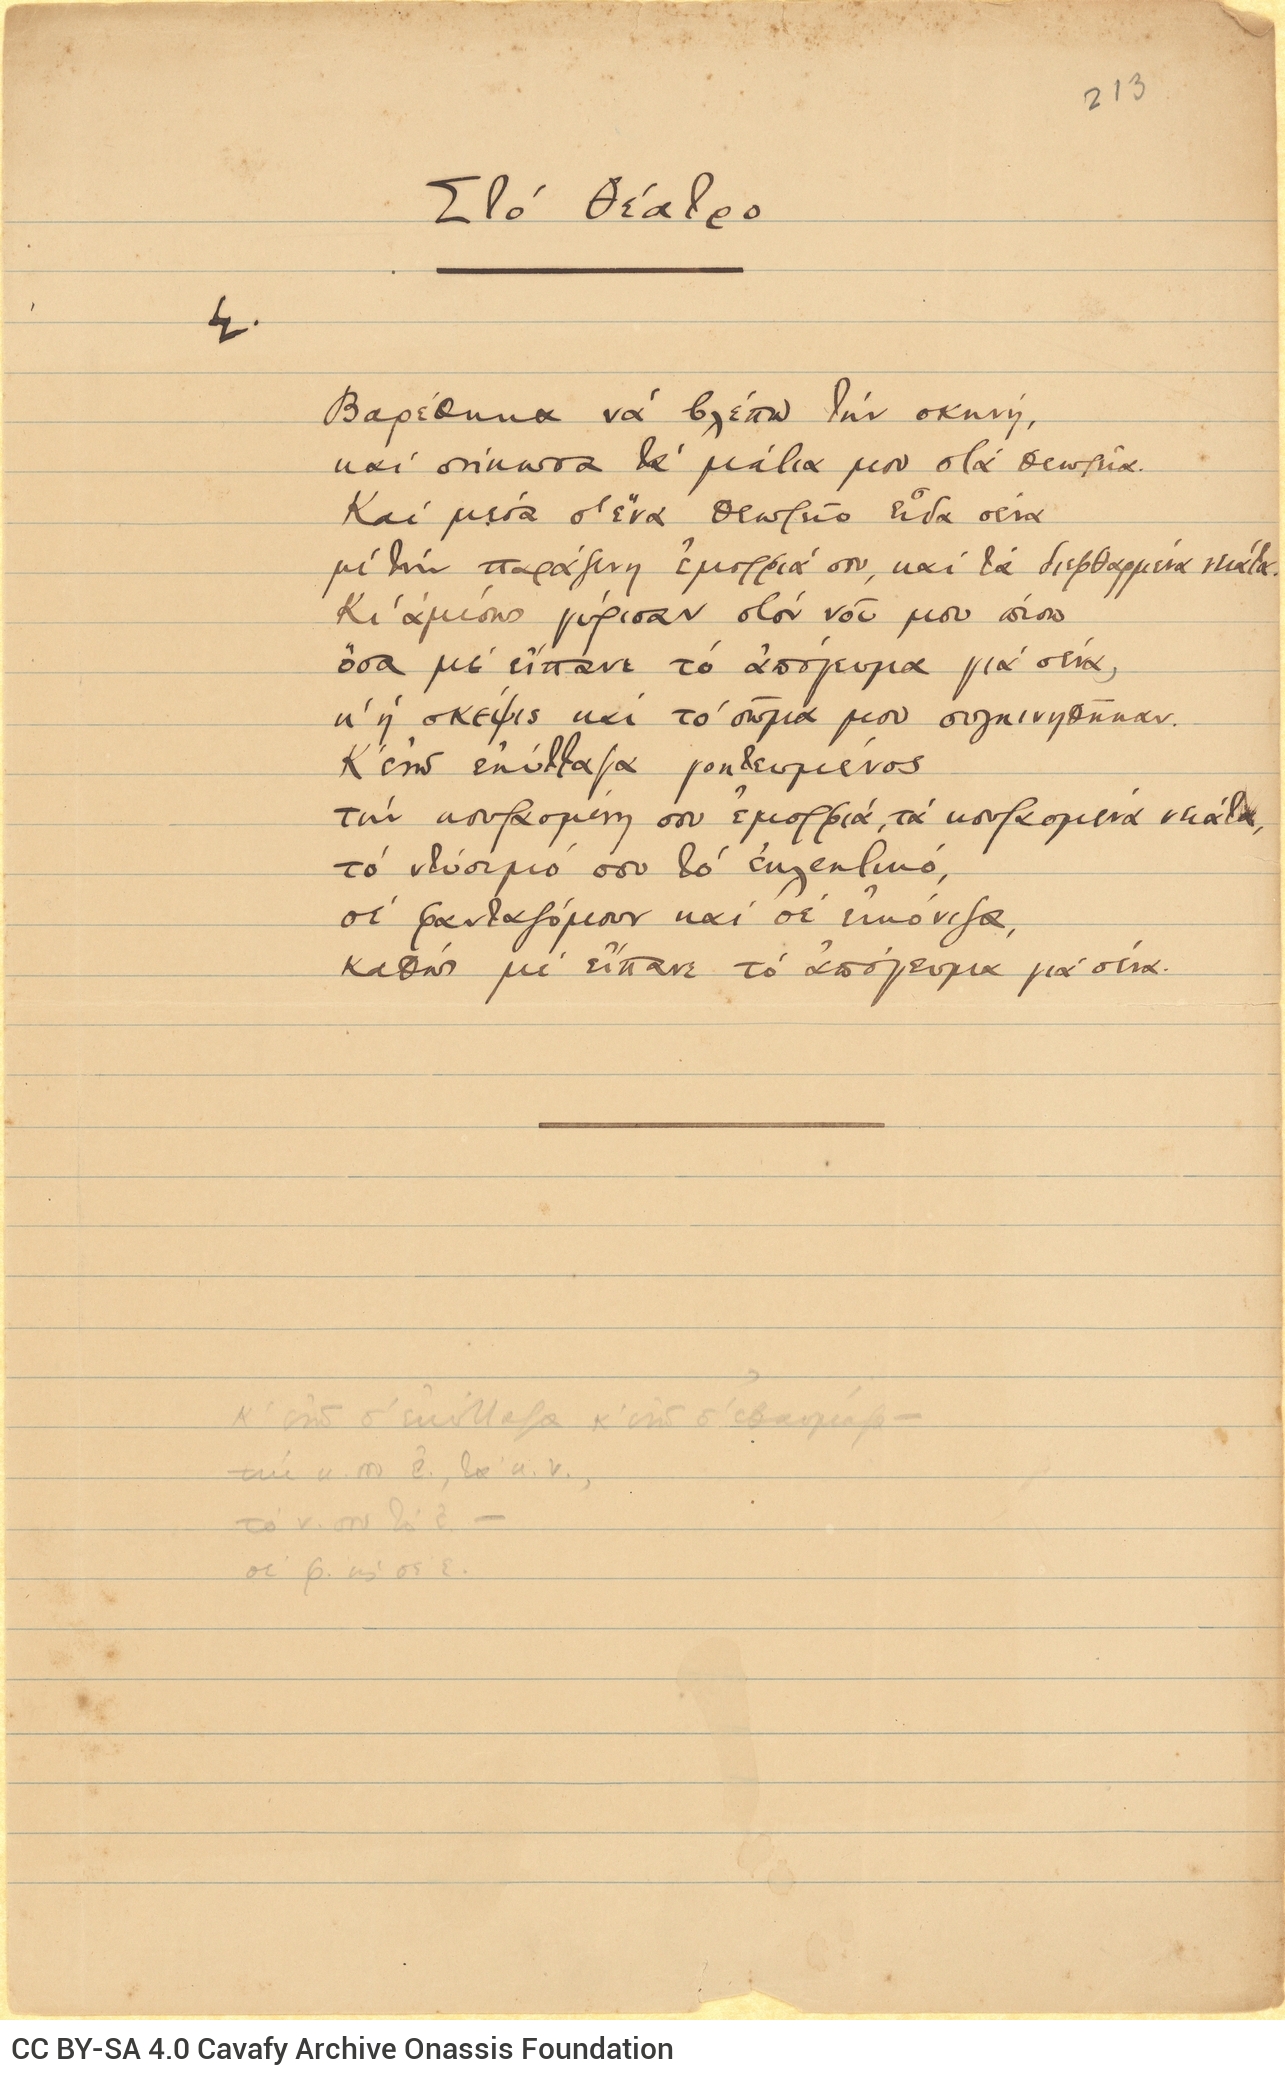 213
Στό θέατρο
Βαρέθηκα νά βλέπω τήν σκηνή,
καί σήκωσα τά μάτια μου στά θεωρεῖα.
Καί μέσα σ' ἕνα θεωρεῖο εἶδα σένα
μέ τήν παράξενη ἐμορφιά σου, καί τά διεφθαρμένα νειάτα.
Κι' ἀμέσως γύρισαν στόν νοῦ μου πίσω
ὅσα μέ εἴπανε τό ἀπόγευμα γιά σένα,
κ' ἡ σκέψις καί τό σῶμα μου συγκινηθῆκαν.
Κ' ἐνῶ ἐκύτταζα γοητευμένος
τήν κουρασμένη σου ἐμορφιά, τά κουρασμένα νειάτα,
τό ντύσιμό σου τό ἐκλεκτικό,
σέ φανταζόμουν καί σέ εἰκόνιζα,
καθώς μέ εἴπανε τό ἀπόγευμα γιά σένα.
Κ' ἐνῶ σ' ἐκύτταζα κ' ἐνῶ σ' ἐθαύμαζα —
τήν κ. σου ἐ., τά κ. ν.,
τό ν. σου τό ἐ. —
σέ φ. κι σέ ε.
CC BY-SA 4.0 Cavafy Archive Onassis Foundation